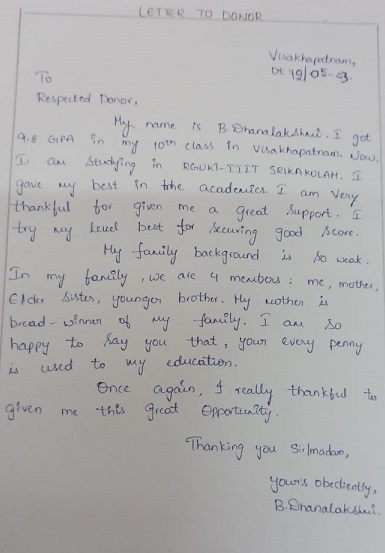 LETTER TO DONOR
Visakhapatnam,
Dt 19/05-23.
To
Respected Donor,
My name is B.Dhanalakshmi. I got
9.8 GPA in my 10th class in Visakhapatnam. Now,
I am studying in RGUKT-IIIT SRIKAKULAM. I
gave my best in the academics. I am very
thankful for given me a great support. I
try my level best for securing good score.
My family background is so weak.
In my family, we are 4 members : me, mother,
Elder sister, younger brother. My mother is
bread-winner of my family. I am so
happy to say you that, your every penny
is used to my education.
Once again, I really thankful to
given me this great opportunity.
Thanking you Sir/madam,
yours obediently,
B.Dhanalakshmi.